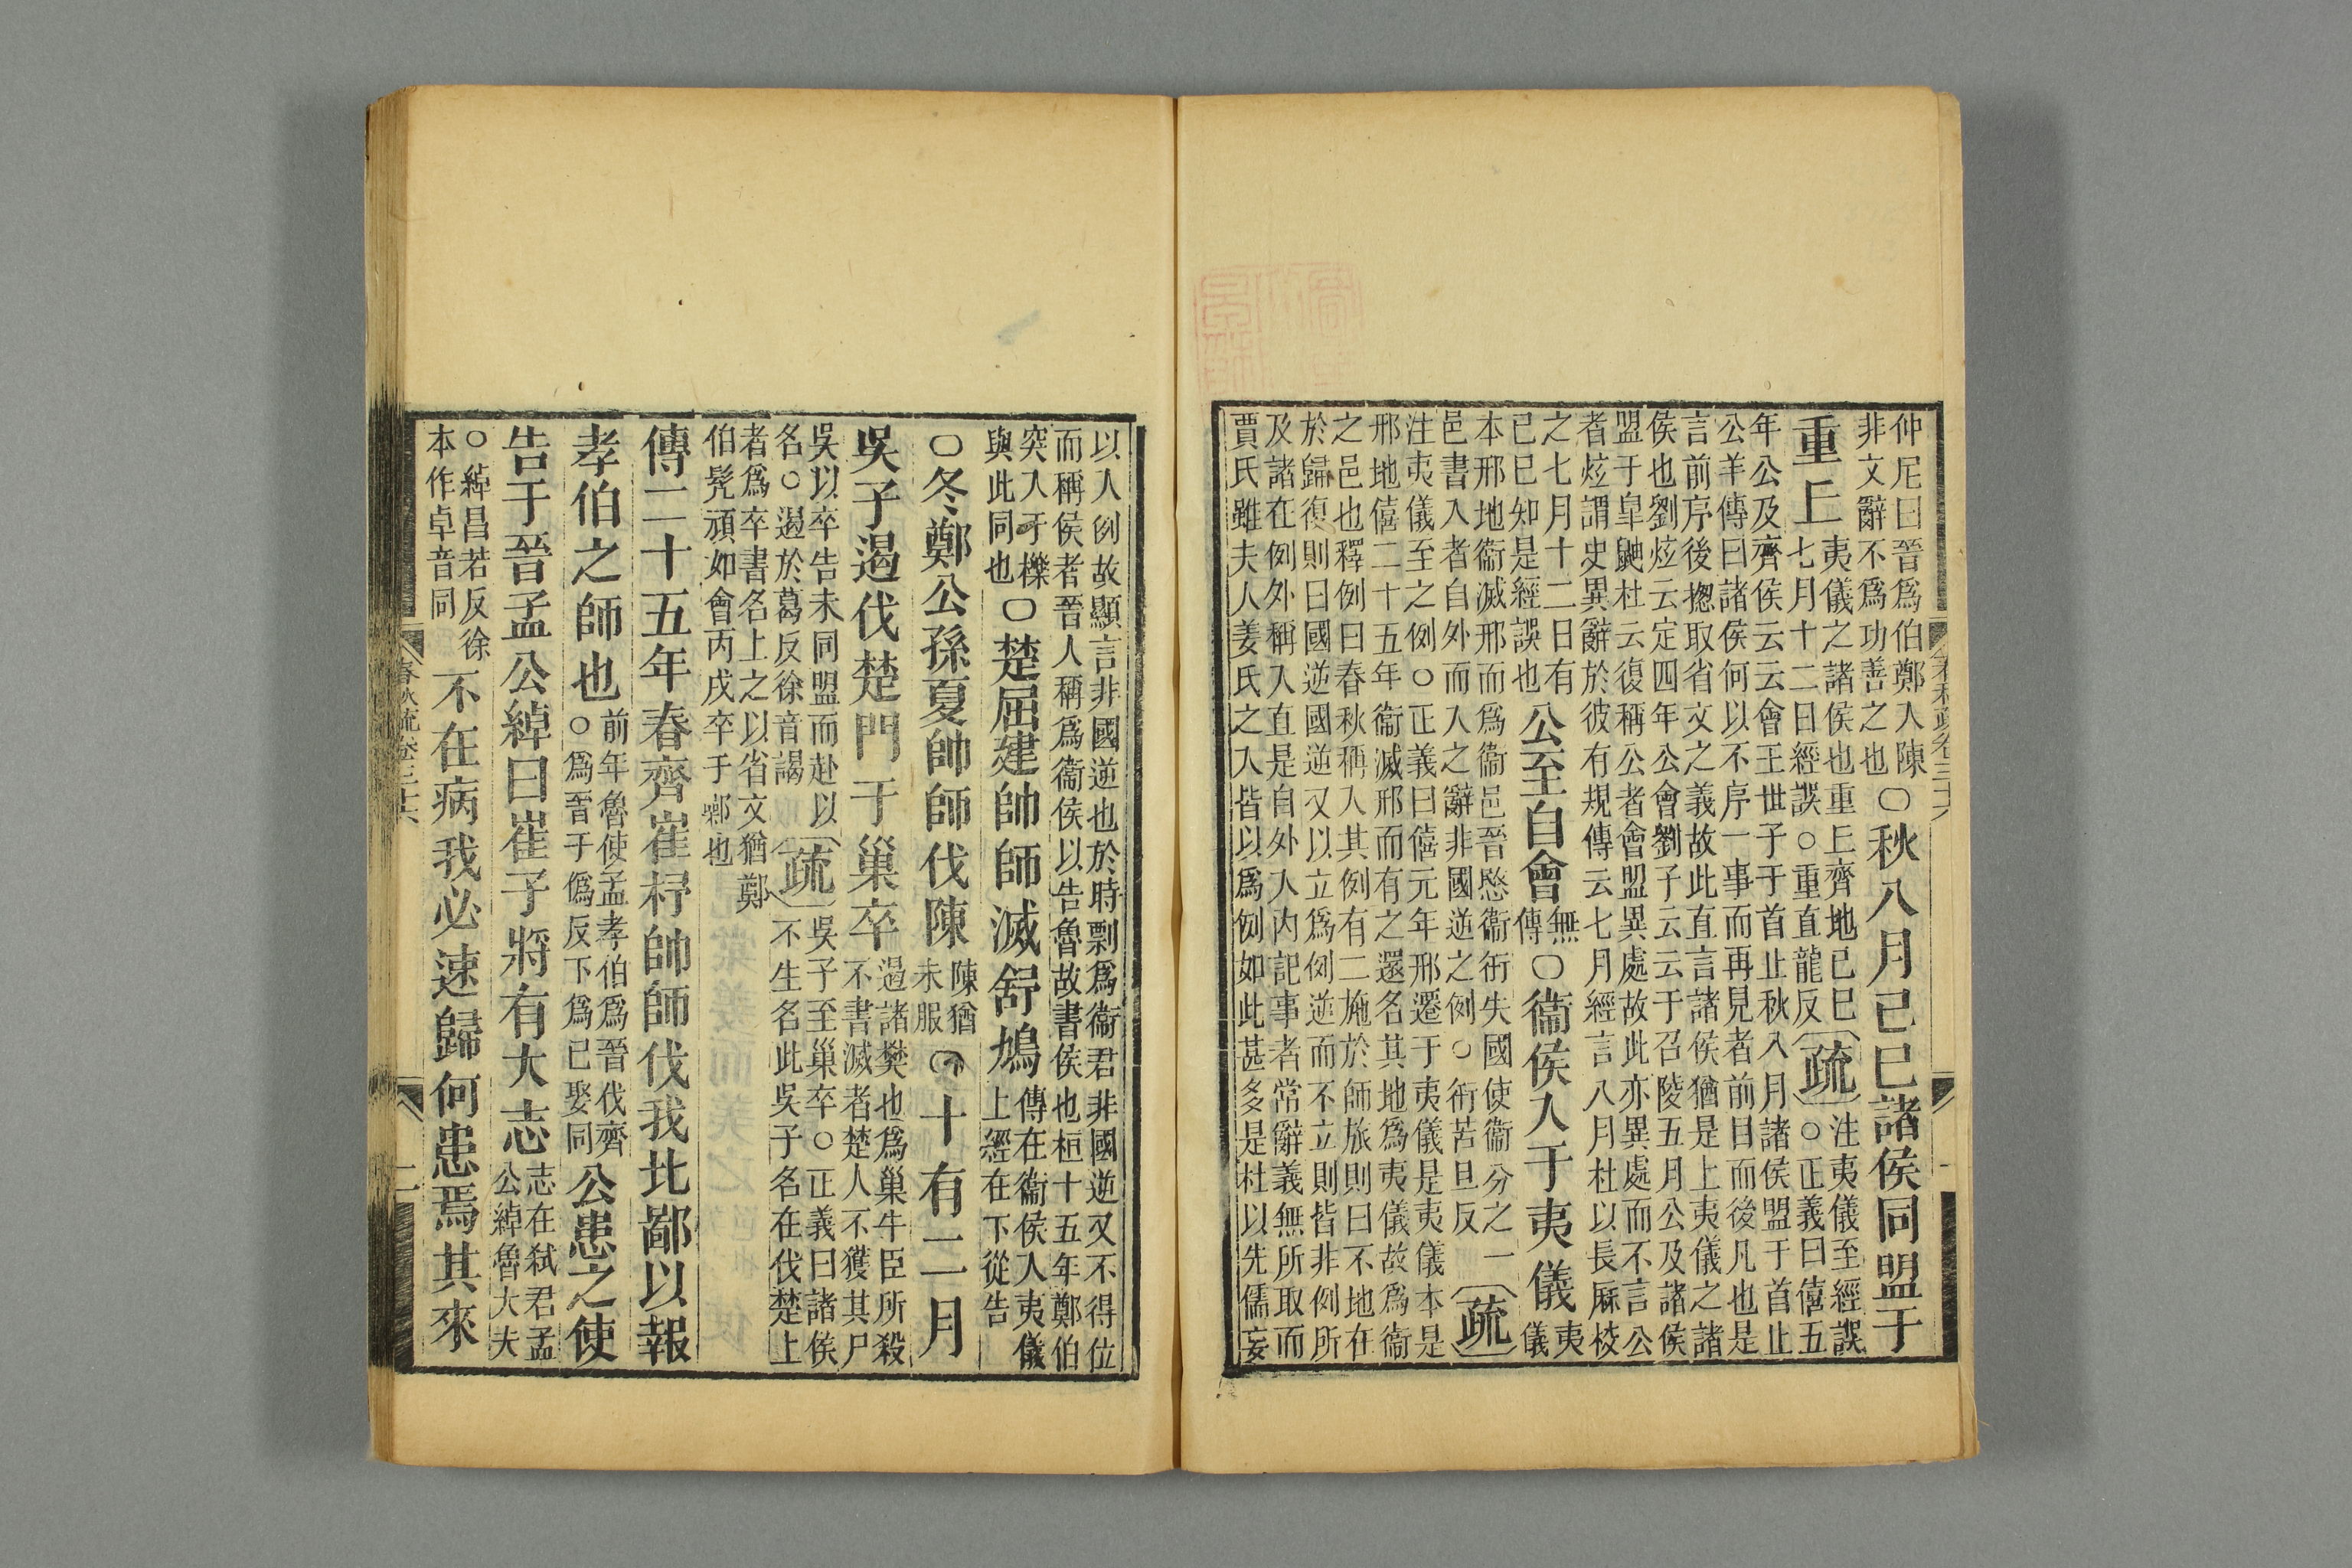 仲尼曰晉爲伯鄭人陳
非文辭不爲功善之也
○秋八月己巳諸侯同盟于
重丘
夷儀之諸侯也重丘齊地己巳
七月十二日經誤○重直龍反
疏
注夷儀至經誤
○正義曰僖五
年公及齊侯云云會王世子于首止秋八月諸侯盟于首止
公羊傳曰諸侯何以不序一事而再見者前目而後凡也是
言前序後摠取省文之義故此直言諸侯猶是上夷儀之諸
侯也劉炫云定四年公會劉子云云于召陵五月公及諸侯
盟于皐鼬杜云復稱公者會盟異處故此亦異處而不言公
者炫謂史異辭於彼有規傳云七月經言八月杜以長厤校
之七月十二日有
己巳知是經誤也
公至自會
無
傳
○衞侯入于夷儀
夷
儀
本邢地衞滅邢而爲衞邑晉愍衞衎失國使衞分之一
邑書入者自外而入之辭非國逆之例○衎苦旦反
疏
注夷儀至之例○正義曰僖元年邢遷于夷儀是夷儀本是
邢地僖二十五年衞滅邢而有之還名其地爲夷儀故爲衞
之邑也釋例曰春秋稱入其例有二施於師旅則曰不地在
於歸復則曰國逆國逆又以立爲例逆而不立則皆非例所
及諸在例外稱入直是自外入內記事者常辭義無所取而
賈氏雖夫人姜氏之入皆以爲例如此甚多是杜以先儒妄
以入例故顯言非國逆也於時剽爲衞君非國逆又不得位
而稱侯者晉人稱爲衞侯以告魯故書侯也桓十五年鄭伯
突入于櫟
與此同也
○楚屈建帥師滅舒鳩
傳在衞侯入夷儀
上經在下從告
○冬鄭公孫夏帥師伐陳
陳猶
未服
○十有二月
吳子遏伐楚門于巢卒
遏諸樊也爲巢牛臣所殺
不書滅者楚人不獲其尸
吳以卒告未同盟而赴以
名○遏於葛反徐音謁
疏
吳子至巢卒○正義曰諸侯
不生名此吳子名在伐楚上
者爲卒書名上之以省文猶鄭
伯髠頑如會丙戌卒于鄵也
傳二十五年春齊崔杼帥師伐我北鄙以報
孝伯之師也
前年魯使孟孝伯爲晉伐齊
○爲晉于僞反下爲己娶同
公患之使
告于晉孟公綽曰崔子將有大志
志在弒君孟
公綽魯大夫
○綽昌若反徐
本作卓音同
不在病我必速歸何患焉其來
春秋疏卷三十六
二